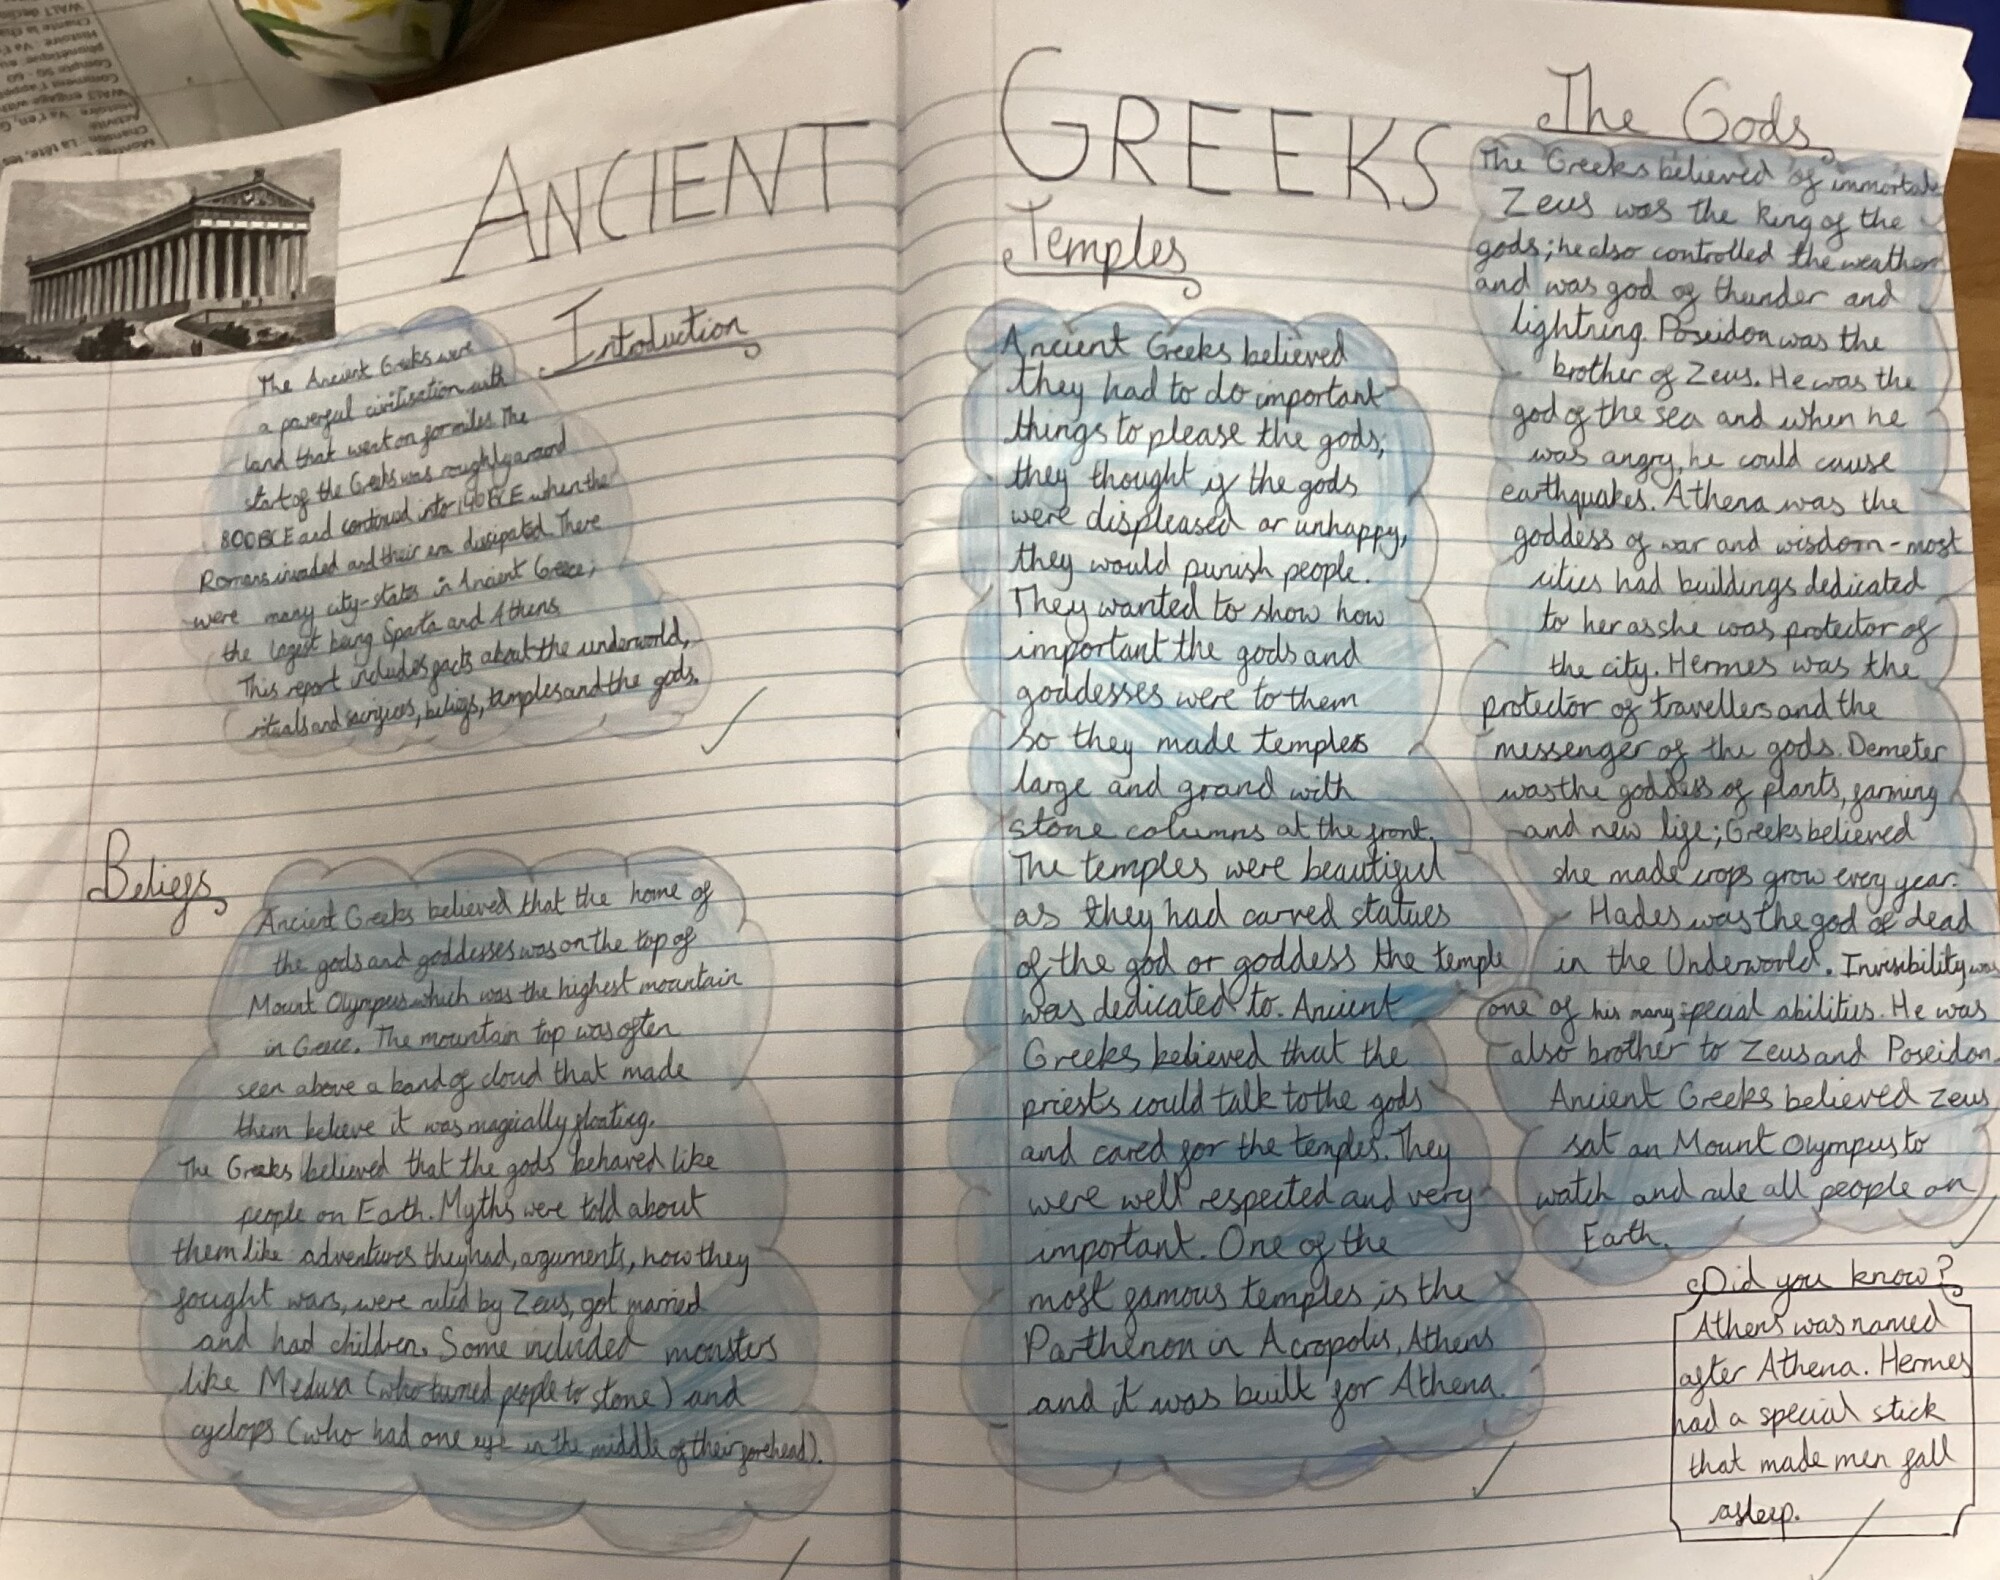 ANCIENT GREEKS
Introduction
The Ancient Greeks were
a powerful civilisation with
land that went on for miles. The
start of the Greeks was roughly around
800BCE and continued into 140BCE when the
Romans invaded and their era dissipated. There
were many city-states in Ancient Greece;
the largest being Sparta and Athens
This report includes facts about the underworld,
rituals and sacrifices, beliefs, temples and the gods.
Beliefs
Ancient Greeks believed that the home of
the gods and goddesses was on the top of
Mount Olympus which was the highest mountain
in Greece. The mountain top was often
seen above a band of cloud that made
them believe it was magically floating.
The Greeks believed that the gods behaved like
people on Earth. Myths were told about
them like adventures they had, arguments, how they
fought wars, were ruled by Zeus, got married
and had children. Some included monsters
like Medusa (who turned people to stone) and
cyclops (who had one eye in the middle of their forehead).
Temples
Ancient Greeks believed
they had to do important
things to please the gods;
they thought if the gods
were displeased or unhappy,
they would punish people.
They wanted to show how
important the gods and
goddesses were to them
so they made temples
large and grand with
stone columns at the front.
The temples were beautiful
as they had carved statues
of the god or goddess the temple
was dedicated to. Ancient
Greeks believed that the
priests could talk to the gods
and cared for the temples. They
were well respected and very
important. One of the
most famous temples is the
Parthenon in Acropolis, Athens
and it was built for Athena.
The Gods
The Greeks believed of immortals
Zeus was the King of the
gods; he also controlled the weather
and was god of thunder and
lightning. Poseidon was the
brother of Zeus. He was the
god of the sea and when he
was angry, he could cause
earthquakes. Athena was the
goddess of war and wisdom - most
cities had buildings dedicated
to her as she was protector of
the city. Hermes was the
protector of travellers and the
messenger of the gods. Demeter
was the goddess of plants, farming
and new life; Greeks believed
she made crops grow every year.
Hades was the god of dead
in the Underworld. Invisibility was
one of his many special abilities. He was
also brother to Zeus and Poseidon.
Ancient Greeks believed Zeus
sat on Mount Olympus to
watch and rule all people on
Earth.
Did you know?
Athens was named
after Athena. Hermes
had a special stick
that made men fall
asleep.